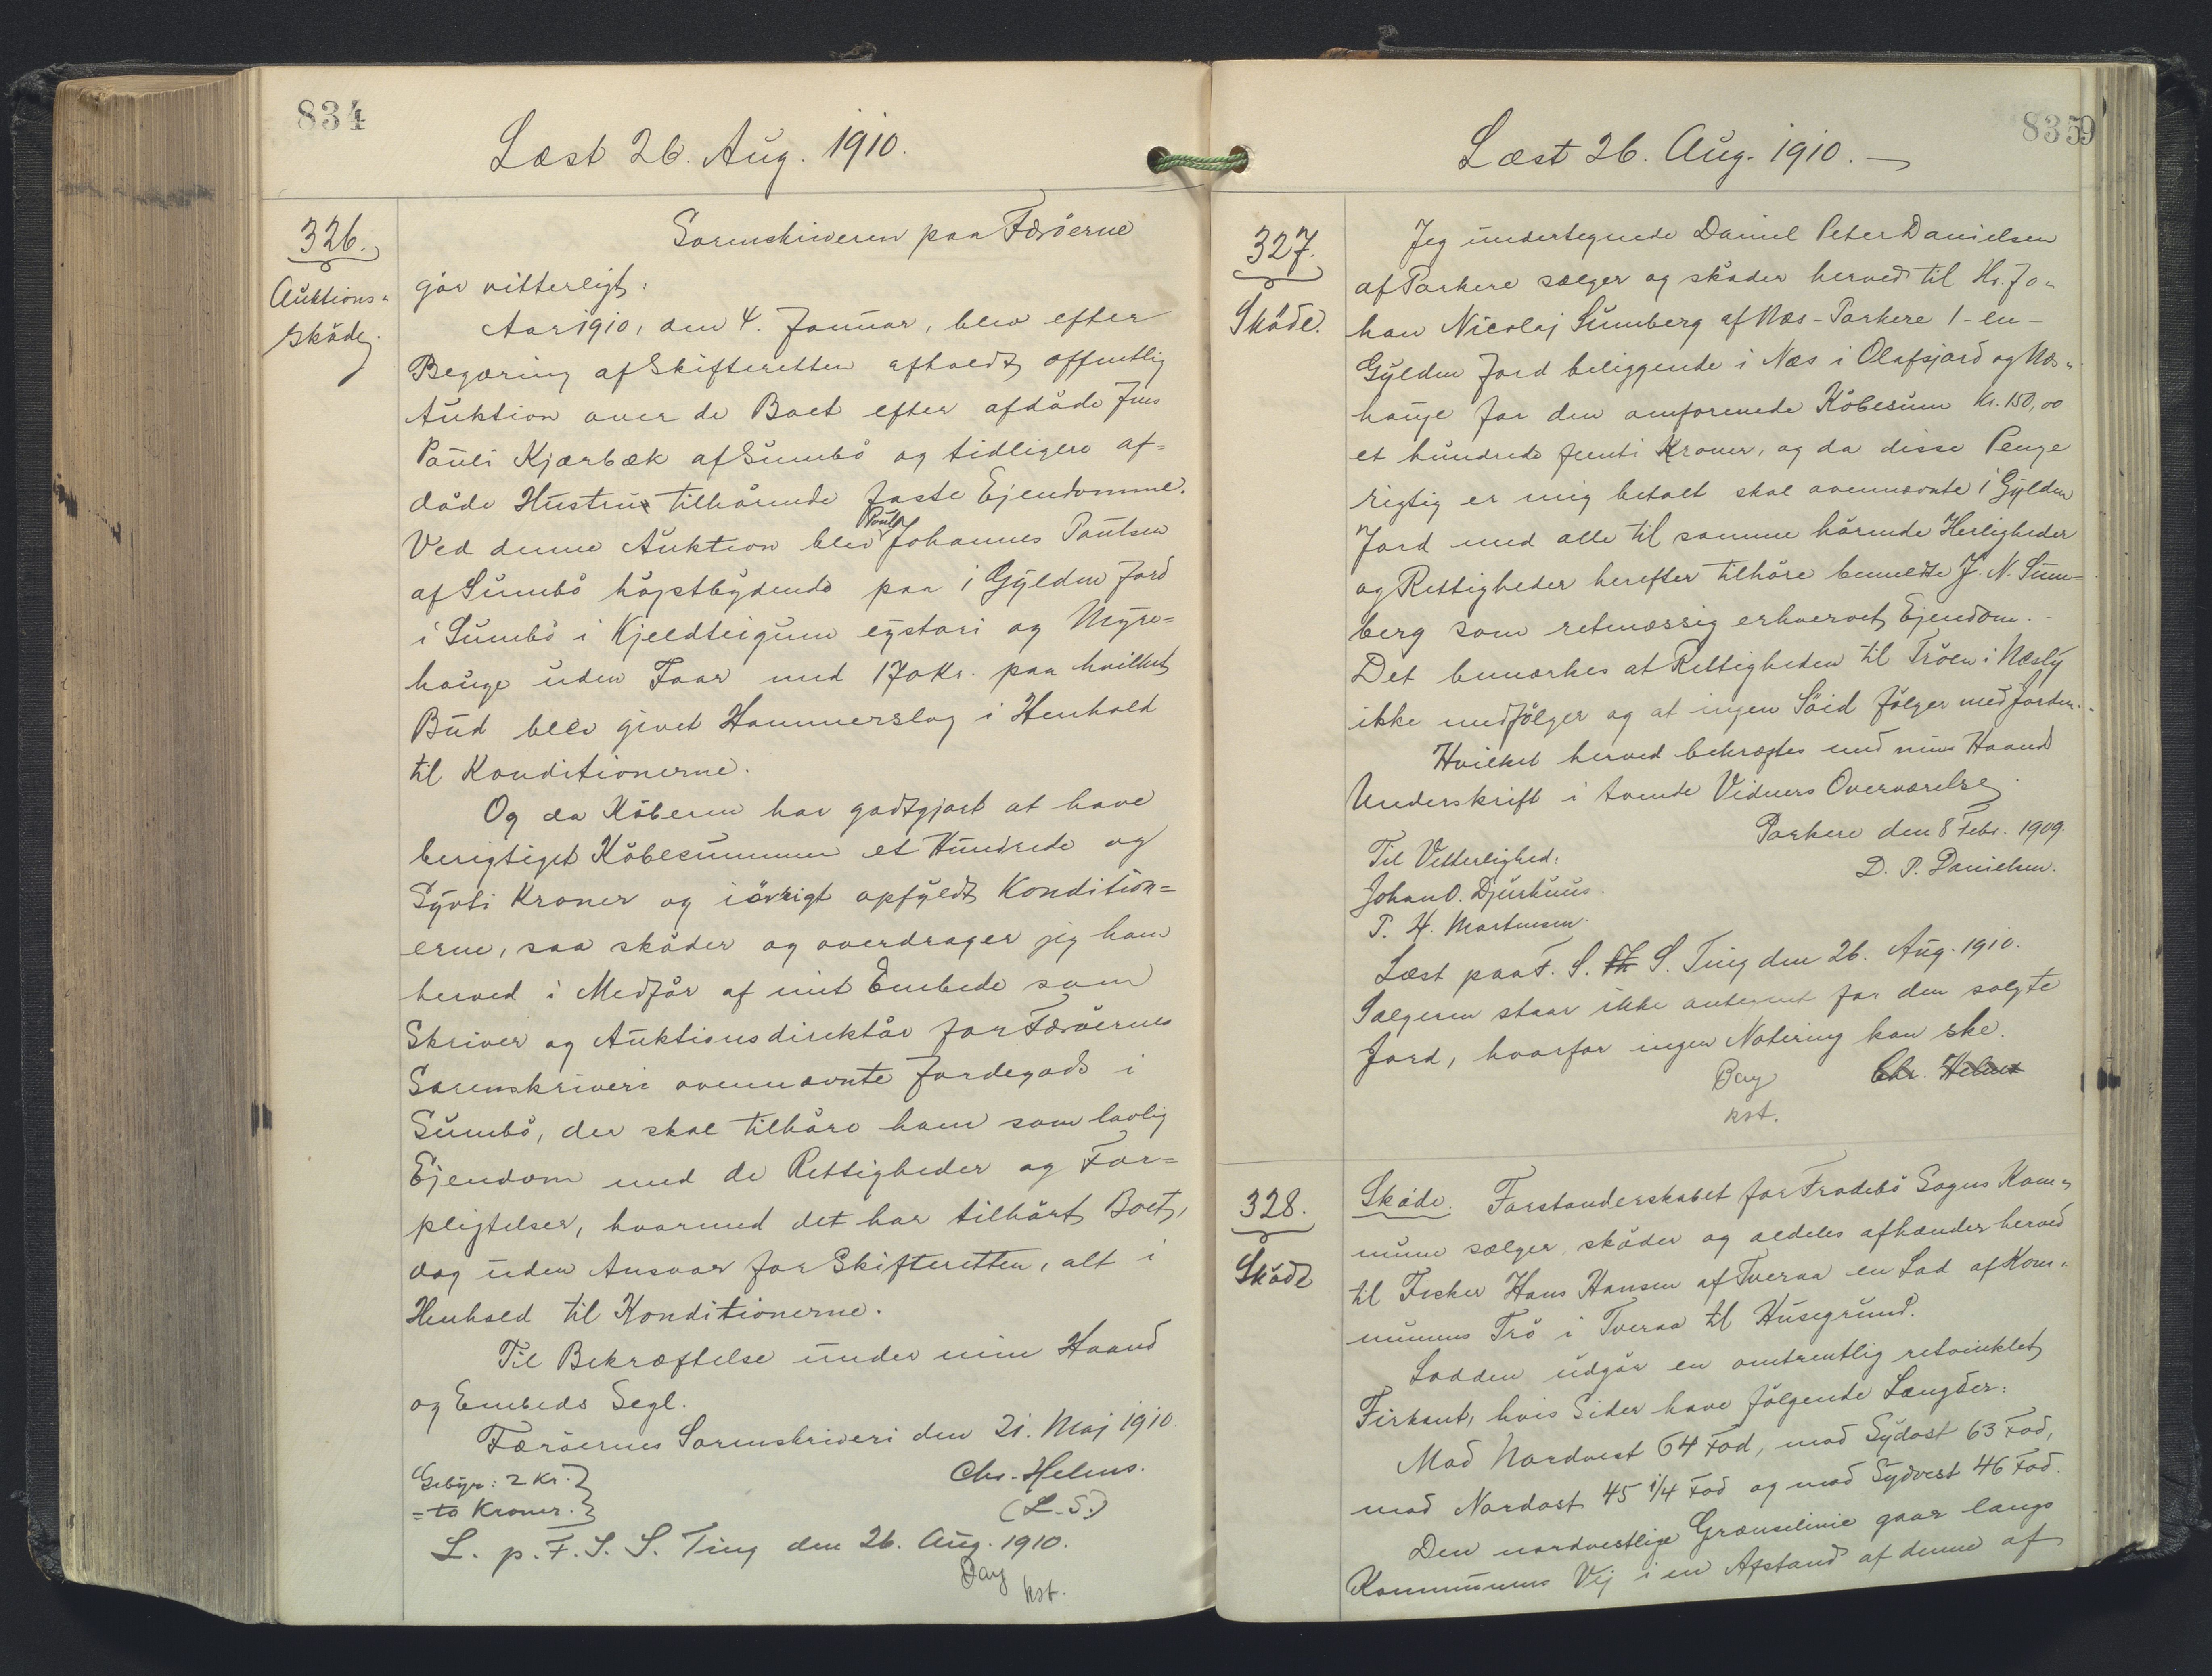 834
Læst 26. Aug. 1910.
326.
Auktions-
skøde.
Sorenskriveren paa Færöerne
gör vitterligt:
Aar 1910, den 4. Januar, blev efter
Begæring af Skifteretten afholdt offentlig
Auktion over de Boet efter afdøde Jens
Pauli Kjærbæk af Sumbö og tidligere af-
døde Hustru tilhørende faste Ejendomme.
Ved denne Auktion blev Poul Johannes Poulsen
af Sumbö højstbydende paa 1 Gylden Jord
i Sumbö i Kjeldteigum eystari og Myre-
hauge uden Faar med 170 Kr. paa hvilket
Bud blev givet Hammerslag i Henhold
til Konditionerne.
Og da Køberen har godtgjort at have
berigtiget Købesummen et Hundrede og
Syvti Kroner og iøvrigt opfyldt Kondition-
erne, saa skøder og overdrager jeg ham
herved i Medfør af mit Embede som
Skriver og Auktionsdirektør for Færöernes
Sorenskriveri ovennævnte Jordegods i
Sumbö, der skal tilhøre ham som lovlig
Ejendom med de Rettigheder og For-
pligtelser, hvormed det har tilhørt Boet,
dog uden Ansvar for Skifteretten, alt i
Henhold til Konditionerne.
Til Bekræftelse under min Haand
og Embeds Segl.
Færöernes Sorenskriveri den 21. Maj 1910.
Gebyr: 2 Kr.
= to Kroner.
Chr. Helms.
(L.S.)
L. p. F. S. S. Ting den 26. Aug. 1910.
Bay
kst.
8359
Læst 26. Aug. 1910.
327.
Skøde.
Jeg undertegnede Daniel Peter Danielsen
af Porkere sælger og skøder herved til Hr. Jo-
han Nicolaj Sumberg af Næs-Porkere 1 - en -
Gylden Jord beliggende i Næs i Olafsjord og Næs-
hauje for den omforenede Købesum Kr. 150,00
et hundrede femti Kroner, og da disse Penge
rigtig er mig betalt skal ovennævnte 1 Gylden
Jord med alle til samme hørende Herligheder
og Rettigheder herefter tilhøre bemeldte J. N. Sum-
berg som retmæssig erhvervet Ejendom.
Det bemærkes at Rettigheden til Tröen i
ikke medfølger og at ingen Söid følger med Jorden.
Hvilket herved bekræftes med min Haands
Underskrift i tvende Vidners Overværelse.
Porkere den 8 Febr. 1909.
Til Vitterlighed:
D. P. Danielsen.
Johan O. Djurhuus.
P. H. Mortensen.
Læst paa F. S. S. Ting den 26. Aug. 1910.
Sælgeren staar ikke anteret for den solgte
Jord, hvorfor ingen Notering kan ske.
Bay
Chr. Helms
kst.
328.
Skøde
Skøde. Forstanderskabet for Frodebö Sogns Kom-
mune sælger, skøder og aldeles afhænder herved
til Fisker Hans Hansen af Tveraa en Lod af Kom-
munens Trö i Tveraa til Husegrund.
Lodden udgør en omtrentlig retvinklet
Firkant, hvis Sider have følgende Længder:
Mod Nordvest 64 Fod, mod Sydost 63 Fod,
mod Nordost 45 1/4 Fod og mod Sydvest 46 Fod.
Den nordvestlige Grænselinie gaar langs
Kommunens Vej i en Afstand af denne af